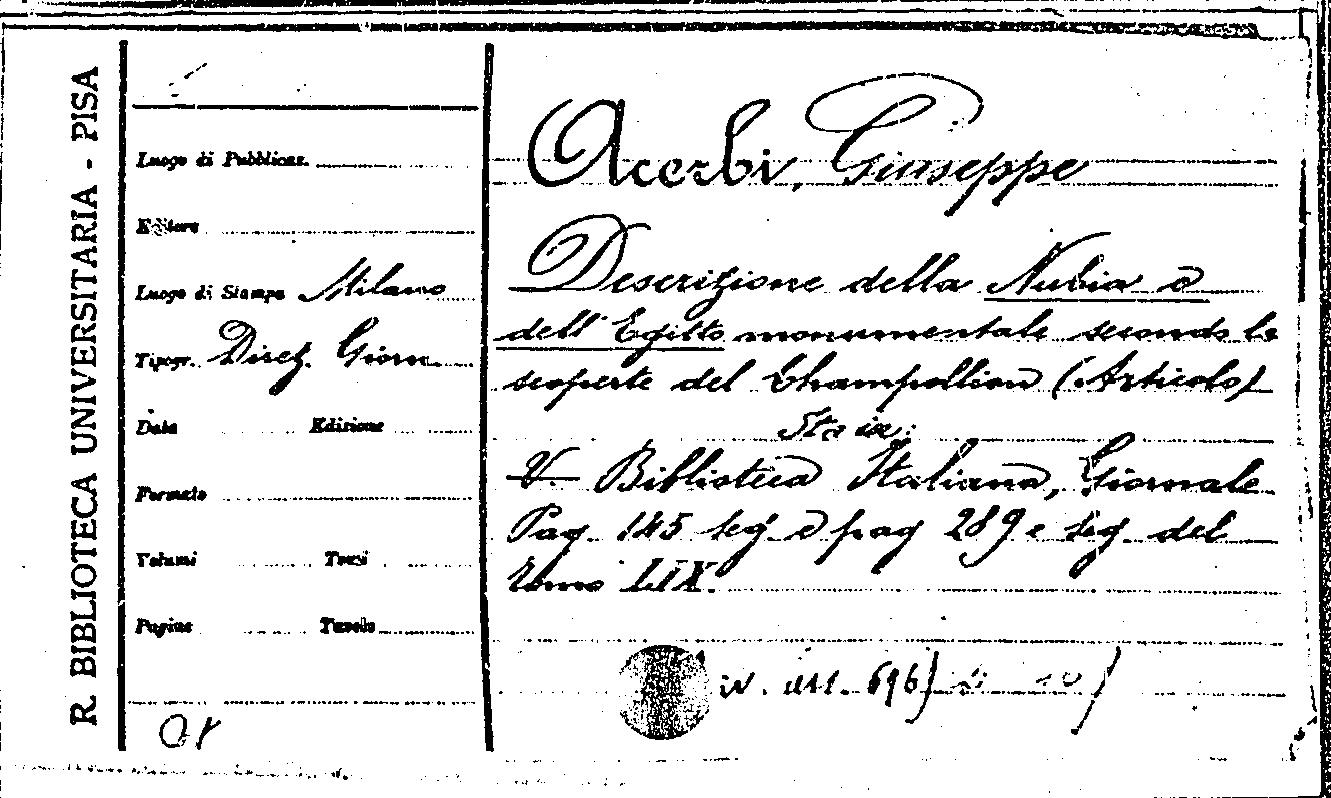 R. BIBLIOTECA UNIVERSITARIA - PISA
Luogo di Pubblicaz.
Editore
Luogo di Stampa Milano
Tipogr. Direz. Giorn.
Data Edizione
Formato
Volumi Tomi
Pagine Tavole
Acerbi, Giuseppe
Descrizione della Nubia e
dell' Egitto monumentale secondo le
scoperte del Champollion (Articolo)
Sta in:
V. Biblioteca Italiana, Giornale
Pag. 145 seg e pag 289 e seg. del
tomo LIX.
696)